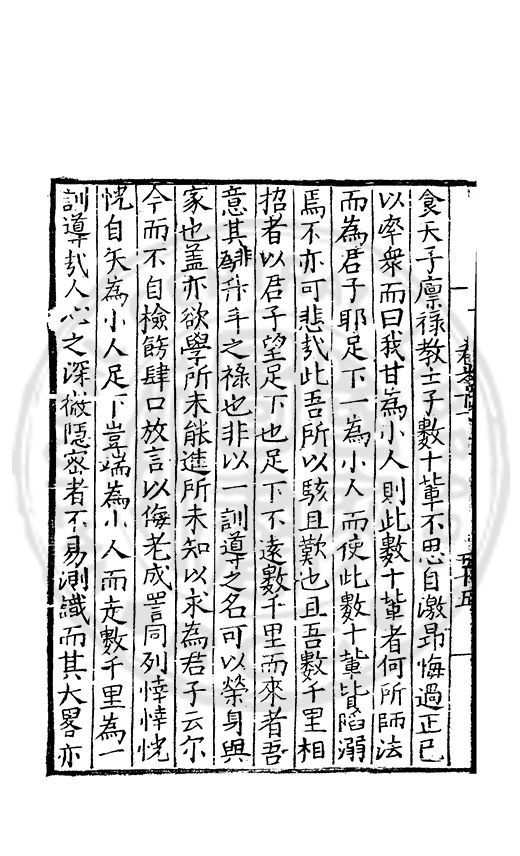 食天子廪祿教士子數十輩不思自激昂悔過正已
以率衆而曰我甘為小人則此數十輩者何所師法
而為君子耶足下一為小人而使此數十輩皆陷溺
焉不亦可悲哉此吾所以駭且歎也且吾數千里相
招者以君子望足下也足下不遠數千里而來者吾
意其非升斗之祿也非以一訓導之名可以榮身與
家也盖亦欲學所未能進所未知以求為君子云尔
今而不自檢飭肆口放言以侮老成詈同列悻悻恍
恍自矢為小人足下豈端為小人而走數千里為一
訓導哉人心之深微隱密者不易測識而其大畧亦